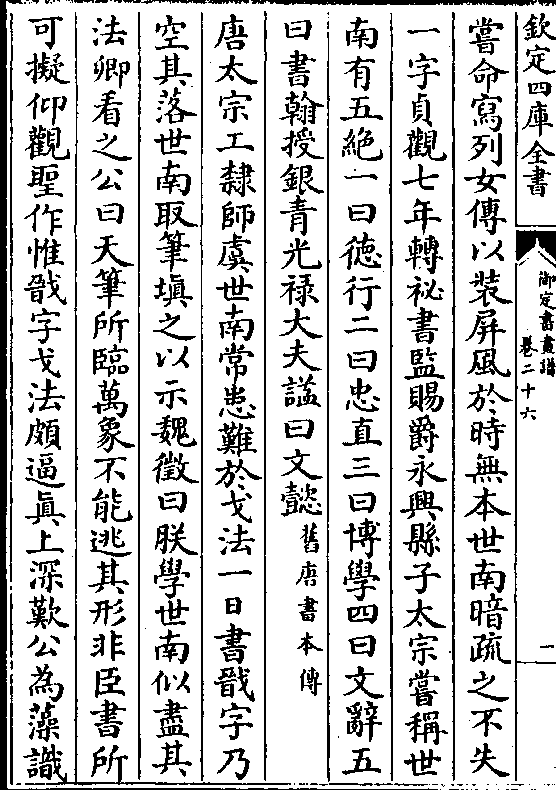 欽定四庫全書
御定書畫譜
卷二十六
一
嘗命寫列女傳以装屏風於時無本世南暗疏之不失
一字貞觀七年轉祕書監賜爵永興縣子太宗嘗稱世
南有五絶一曰徳行二曰忠直三曰博學四曰文辭五
曰書翰授銀青光禄大夫諡曰文懿舊唐書本傳
唐太宗工隸師虞世南常患難於戈法一日書戩字乃
空其落世南取筆塡之以示魏徵曰朕學世南似盡其
法卿看之公曰天筆所臨萬象不能逃其形非臣書所
可擬仰觀聖作惟戩字戈法頗逼眞上深歎公為藻識